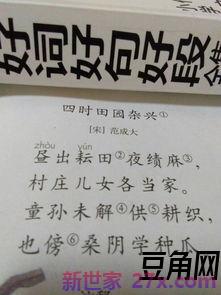 好词好句好段
四时田园杂兴①
[宋]范成大
zhòu yún
昼出耘田②夜绩麻③,
村庄儿女各当家。
童孙未解④供⑤耕织,
也傍⑥桑阴学种瓜
新世家 27x.com
豆角网